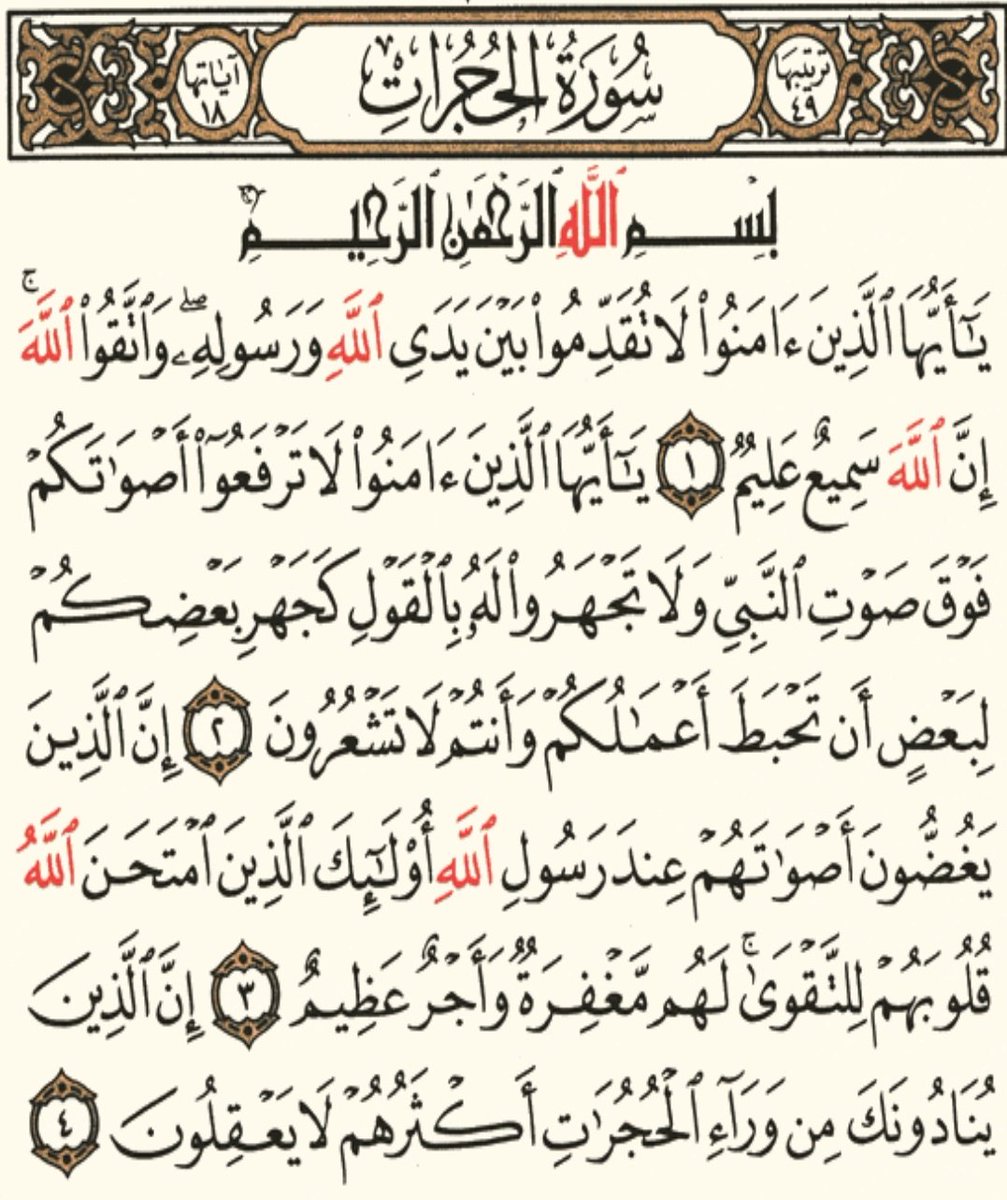 ترتيبها ٤٩
سُورَةُ الحُجُرَاتِ
آيَاتها ١٨
بِسْمِ ٱللَّهِ ٱلرَّحْمَٰنِ ٱلرَّحِيمِ
يَٰٓأَيُّهَا ٱلَّذِينَ ءَامَنُوا۟ لَا تُقَدِّمُوا۟ بَيْنَ يَدَىِ ٱللَّهِ وَرَسُولِهِۦۖ وَٱتَّقُوا۟ ٱللَّهَۚ
إِنَّ ٱللَّهَ سَمِيعٌ عَلِيمٌ ١ يَٰٓأَيُّهَا ٱلَّذِينَ ءَامَنُوا۟ لَا تَرْفَعُوٓا۟ أَصْوَٰتَكُمْ
فَوْقَ صَوْتِ ٱلنَّبِىِّ وَلَا تَجْهَرُوا۟ لَهُۥ بِٱلْقَوْلِ كَجَهْرِ بَعْضِكُمْ
لِبَعْضٍ أَن تَحْبَطَ أَعْمَٰلُكُمْ وَأَنتُمْ لَا تَشْعُرُونَ ٢ إِنَّ ٱلَّذِينَ
يَغُضُّونَ أَصْوَٰتَهُمْ عِندَ رَسُولِ ٱللَّهِ أُو۟لَٰٓئِكَ ٱلَّذِينَ ٱمْتَحَنَ ٱللَّهُ
قُلُوبَهُمْ لِلتَّقْوَىٰۚ لَهُم مَّغْفِرَةٌ وَأَجْرٌ عَظِيمٌ ٣ إِنَّ ٱلَّذِينَ
يُنَادُونَكَ مِن وَرَآءِ ٱلْحُجُرَٰتِ أَكْثَرُهُمْ لَا يَعْقِلُونَ ٤